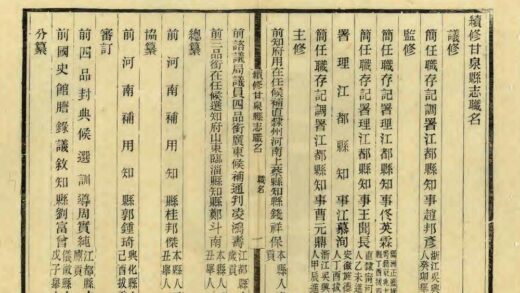 續修甘泉縣志職名
議修
簡任職存記調署江都縣知事趙邦彥 浙江吳興人癸卯舉
監修
簡任職存記署理江都縣知事佟英霖
簡任職存記調署江都縣知事王聞長 直隸人乙未進
署理江都縣知事江慕洵 安徽旌德人丁酉拔
簡任職存記調署江都縣知事曹元鼎 浙江吳興人甲辰進
主修
前知府用在任候補直隸州河南上蔡縣知縣錢祥保 本縣人貢
續修甘泉縣志 職名 一
前諮議局議員四品銜廣東候補通判凌鴻壽 江都縣人歲貢
前三品銜在任候選知府山東臨淄縣知縣鄭斗南
總纂
前河南補用知縣桂邦傑 本縣人丑舉人
協纂
前河南補用知縣郭鍾琦 興化縣人己酉拔貢
審訂
前四品封典候選訓導周貫純 江都縣人貢
前國史館謄錄議敘知縣劉富曾 儀徵縣人戊子舉
分纂